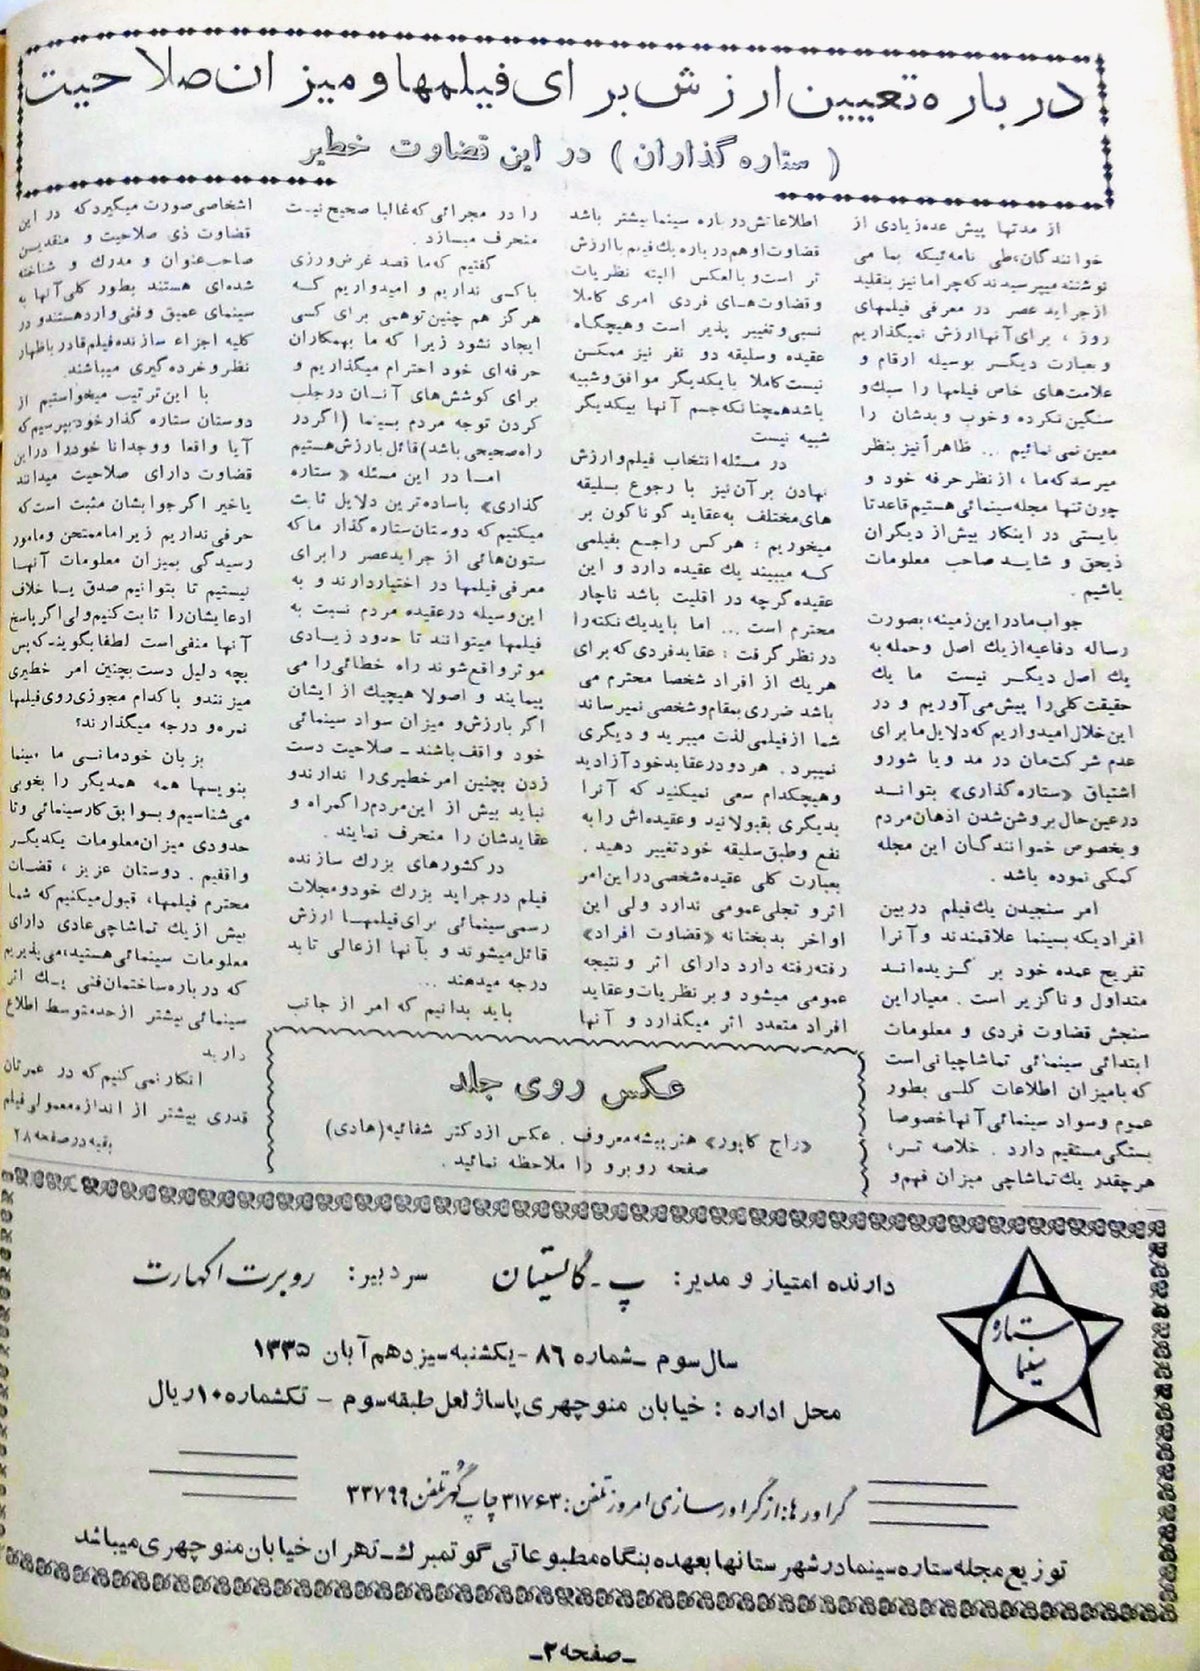 درباره تعیین ارزش برای فیلمها و میزان صلاحیت
( ستاره گذاران ) در این قضاوت خطیر
از مدتها پیش عده زیادی از
خوانندگان، طی نامه‌ئیکه بما می
نوشتند میپرسیدند که چرا ما نیز بتقلید
از جراید عصر در معرفی فیلمهای
روز ، برای آنها ارزش نمیگذاریم
و بعبارت دیگر بوسیله ارقام و
علامت‌های خاص فیلمها را سبک و
سنگین نکرده و خوب و بدشان را
معین نمی نمائیم ... ظاهراً نیز بنظر
میرسد که ما ، از نظر حرفه خود و
چون تنها مجله سینمائی هستیم قاعدتا
بایستی در اینکار بیش از دیگران
ذیحق و شاید صاحب معلومات
باشیم .
جواب ما در این زمینه، بصورت
رساله دفاعیه از یک اصل و حمله به
یک اصل دیگر نیست ما یک
حقیقت کلی را پیش می آوریم و در
این خلال امیدواریم که دلایل ما برای
عدم شرکت‌مان در مد و یا شور و
اشتیاق «ستاره گذاری» بتواند
در عین حال بروشن شدن اذهان مردم
و بخصوص خوانندگان این مجله
کمکی نموده باشد .
امر سنجیدن یک فیلم در بین
افرادیکه بسینما علاقمندند و آنرا
تفریح عمده خود بر گزیده‌اند
متداول و ناگزیر است . معیار این
سنجش قضاوت فردی و معلومات
ابتدائی سینمائی تماشاچیانی است
که با میزان اطلاعات کلی بطور
عموم و سواد سینمائی آنها خصوصا
بستگی مستقیم دارد . خلاصه تر،
هر چقدر یک تماشاچی میزان فهم و
اطلاعاتش درباره سینما بیشتر باشد
قضاوت او هم درباره یک فیلم با ارزش
تر است و بالعکس البته نظریات
و قضاوت‌های فردی امری کاملا
نسبی و تغییر پذیر است و هیچگاه
عقیده و سلیقه دو نفر نیز ممکن
نیست کاملا با یکدیگر موافق و شبیه
باشد همچنانکه جسم آنها بیکدیگر
شبیه نیست
در مسئله انتخاب فیلم و ارزش
نهادن بر آن نیز با رجوع بسلیقه
های مختلف به عقاید گوناگون بر
میخوریم : هر کس راجع بفیلمی
که میبیند یک عقیده دارد و این
عقیده گرچه در اقلیت باشد ناچار
محترم است ... اما باید یک نکته را
در نظر گرفت : عقاید فردی که برای
هر یک از افراد شخصا محترم می
باشد ضرری بمقام و شخصی نمیرساند
شما از فیلمی لذت میبرید و دیگری
نمیبرد . هر دو در عقاید خود آزادید
و هیچکدام سعی نمیکنید که آنرا
بدیگری بقبولانید و عقیده‌اش را به
نفع و طبق سلیقه خود تغییر دهید .
بعبارت کلی عقیده شخصی در این امر
اثر و تجلی عمومی ندارد ولی این
اواخر بدبختانه «قضاوت افراد»
رفته رفته دارد دارای اثر و نتیجه
عمومی میشود و بر نظریات و عقاید
افراد متعدد اثر میگذارد و آنها
را در مجرائی که غالبا صحیح نیست
منحرف میسازد .
گفتیم که ما قصد غرض ورزی
با کسی نداریم و امیدواریم که
هرگز هم چنین توهمی برای کسی
ایجاد نشود زیرا که ما بهمکاران
حرفه‌ای خود احترام میگذاریم و
برای کوشش‌های آنان در جلب
کردن توجه مردم بسینما (اگر در
راه صحیحی باشد) قائل بارزش هستیم
اما در این مسئله « ستاره
گذاری» با ساده‌ترین دلایل ثابت
میکنیم که دوستان ستاره گذار ما که
ستون‌هائی از جراید عصر را برای
معرفی فیلمها در اختیار دارند و به
این وسیله در عقیده مردم نسبت به
فیلمها میتوانند تا حدود زیادی
موثر واقع شوند راه خطائی را می
پیمایند و اصولا هیچیک از ایشان
اگر بارزش و میزان سواد سینمائی
خود واقف باشند ـ صلاحیت دست
زدن بچنین امر خطیری را ندارند و
نباید بیش از این مردم را گمراه و
عقایدشان را منحرف نمایند .
در کشورهای بزرگ سازنده
فیلم در جراید بزرگ خود و مجلات
رسمی سینمائی برای فیلمها ارزش
قائل میشوند و بآنها از عالی تا بد
درجه میدهند ...
باید بدانیم که امر از جانب
اشخاصی صورت میگیرد که در این
قضاوت ذی صلاحیت و منقدین
صاحب عنوان و مدرک و شناخته
شده‌ای هستند بطور کلی آنها به
سینمای عمیق و فنی واردهستند و در
کلیه اجزاء سازنده فیلم قادر باظهار
نظر و خرده گیری میباشند
با این ترتیب میخواستیم از
دوستان ستاره گذار خود بپرسیم که
آیا واقعا و وجدانا خود را در این
قضاوت دارای صلاحیت میدانند
یا خیر اگر جوابشان مثبت است که
حرفی نداریم زیرا ما ممتحن و مامور
رسیدگی بمیزان معلومات آنها
نیستیم تا بتوانیم صدق یا خلاف
ادعایشان را ثابت کنیم ولی اگر پاسخ
آنها منفی است لطفا بگویند که پس
بچه دلیل دست بچنین امر خطیری
میزنند و با کدام مجوزی روی فیلمها
نمره و درجه میگذارند؟
بزبان خودمانی ما سینما
نویسها همه همدیگر را بخوبی
می شناسیم و بسوابق کار سینمائی و تا
حدودی میزان معلومات یکدیگر
واقفیم . دوستان عزیز ، قضات
محترم فیلمها، قبول میکنیم که شما
بیش از یک تماشاچی عادی دارای
معلومات سینمائی هستید، می پذیریم
که درباره ساختمان فنی یک اثر
سینمائی بیشتر از حد متوسط اطلاع
دارید
انکار نمی کنیم که در عمرتان
قدری بیشتر از اندازه معمولی فیلم
بقیه در صفحه ۲۸
عکس روی جلد
«راج کاپور» هنرپیشه معروف . عکس از دکتر شفائیه (هادی)
صفحه روبرو را ملاحظه نمائید .
ستاره
سینما
دارنده امتیاز و مدیر: پ ـ گالستیان سردبیر: روبرت اکهارت
سال سوم ـ شماره ۸۶ ـ یکشنبه سیزدهم آبان ۱۳۳۵
محل اداره : خیابان منوچهری پاساژ لعل طبقه سوم ـ تکشماره ۱۰ ریال
گراورها: از گراورسازی امروز تلفن: ۳۱۷۶۳ چاپ گهر تلفن ۳۳۷۹۹
توزیع مجله ستاره سینما در شهرستانها بعهده بنگاه مطبوعاتی گوتمبرک ـ تهران خیابان منوچهری میباشد
ـ صفحه ۲ ـ